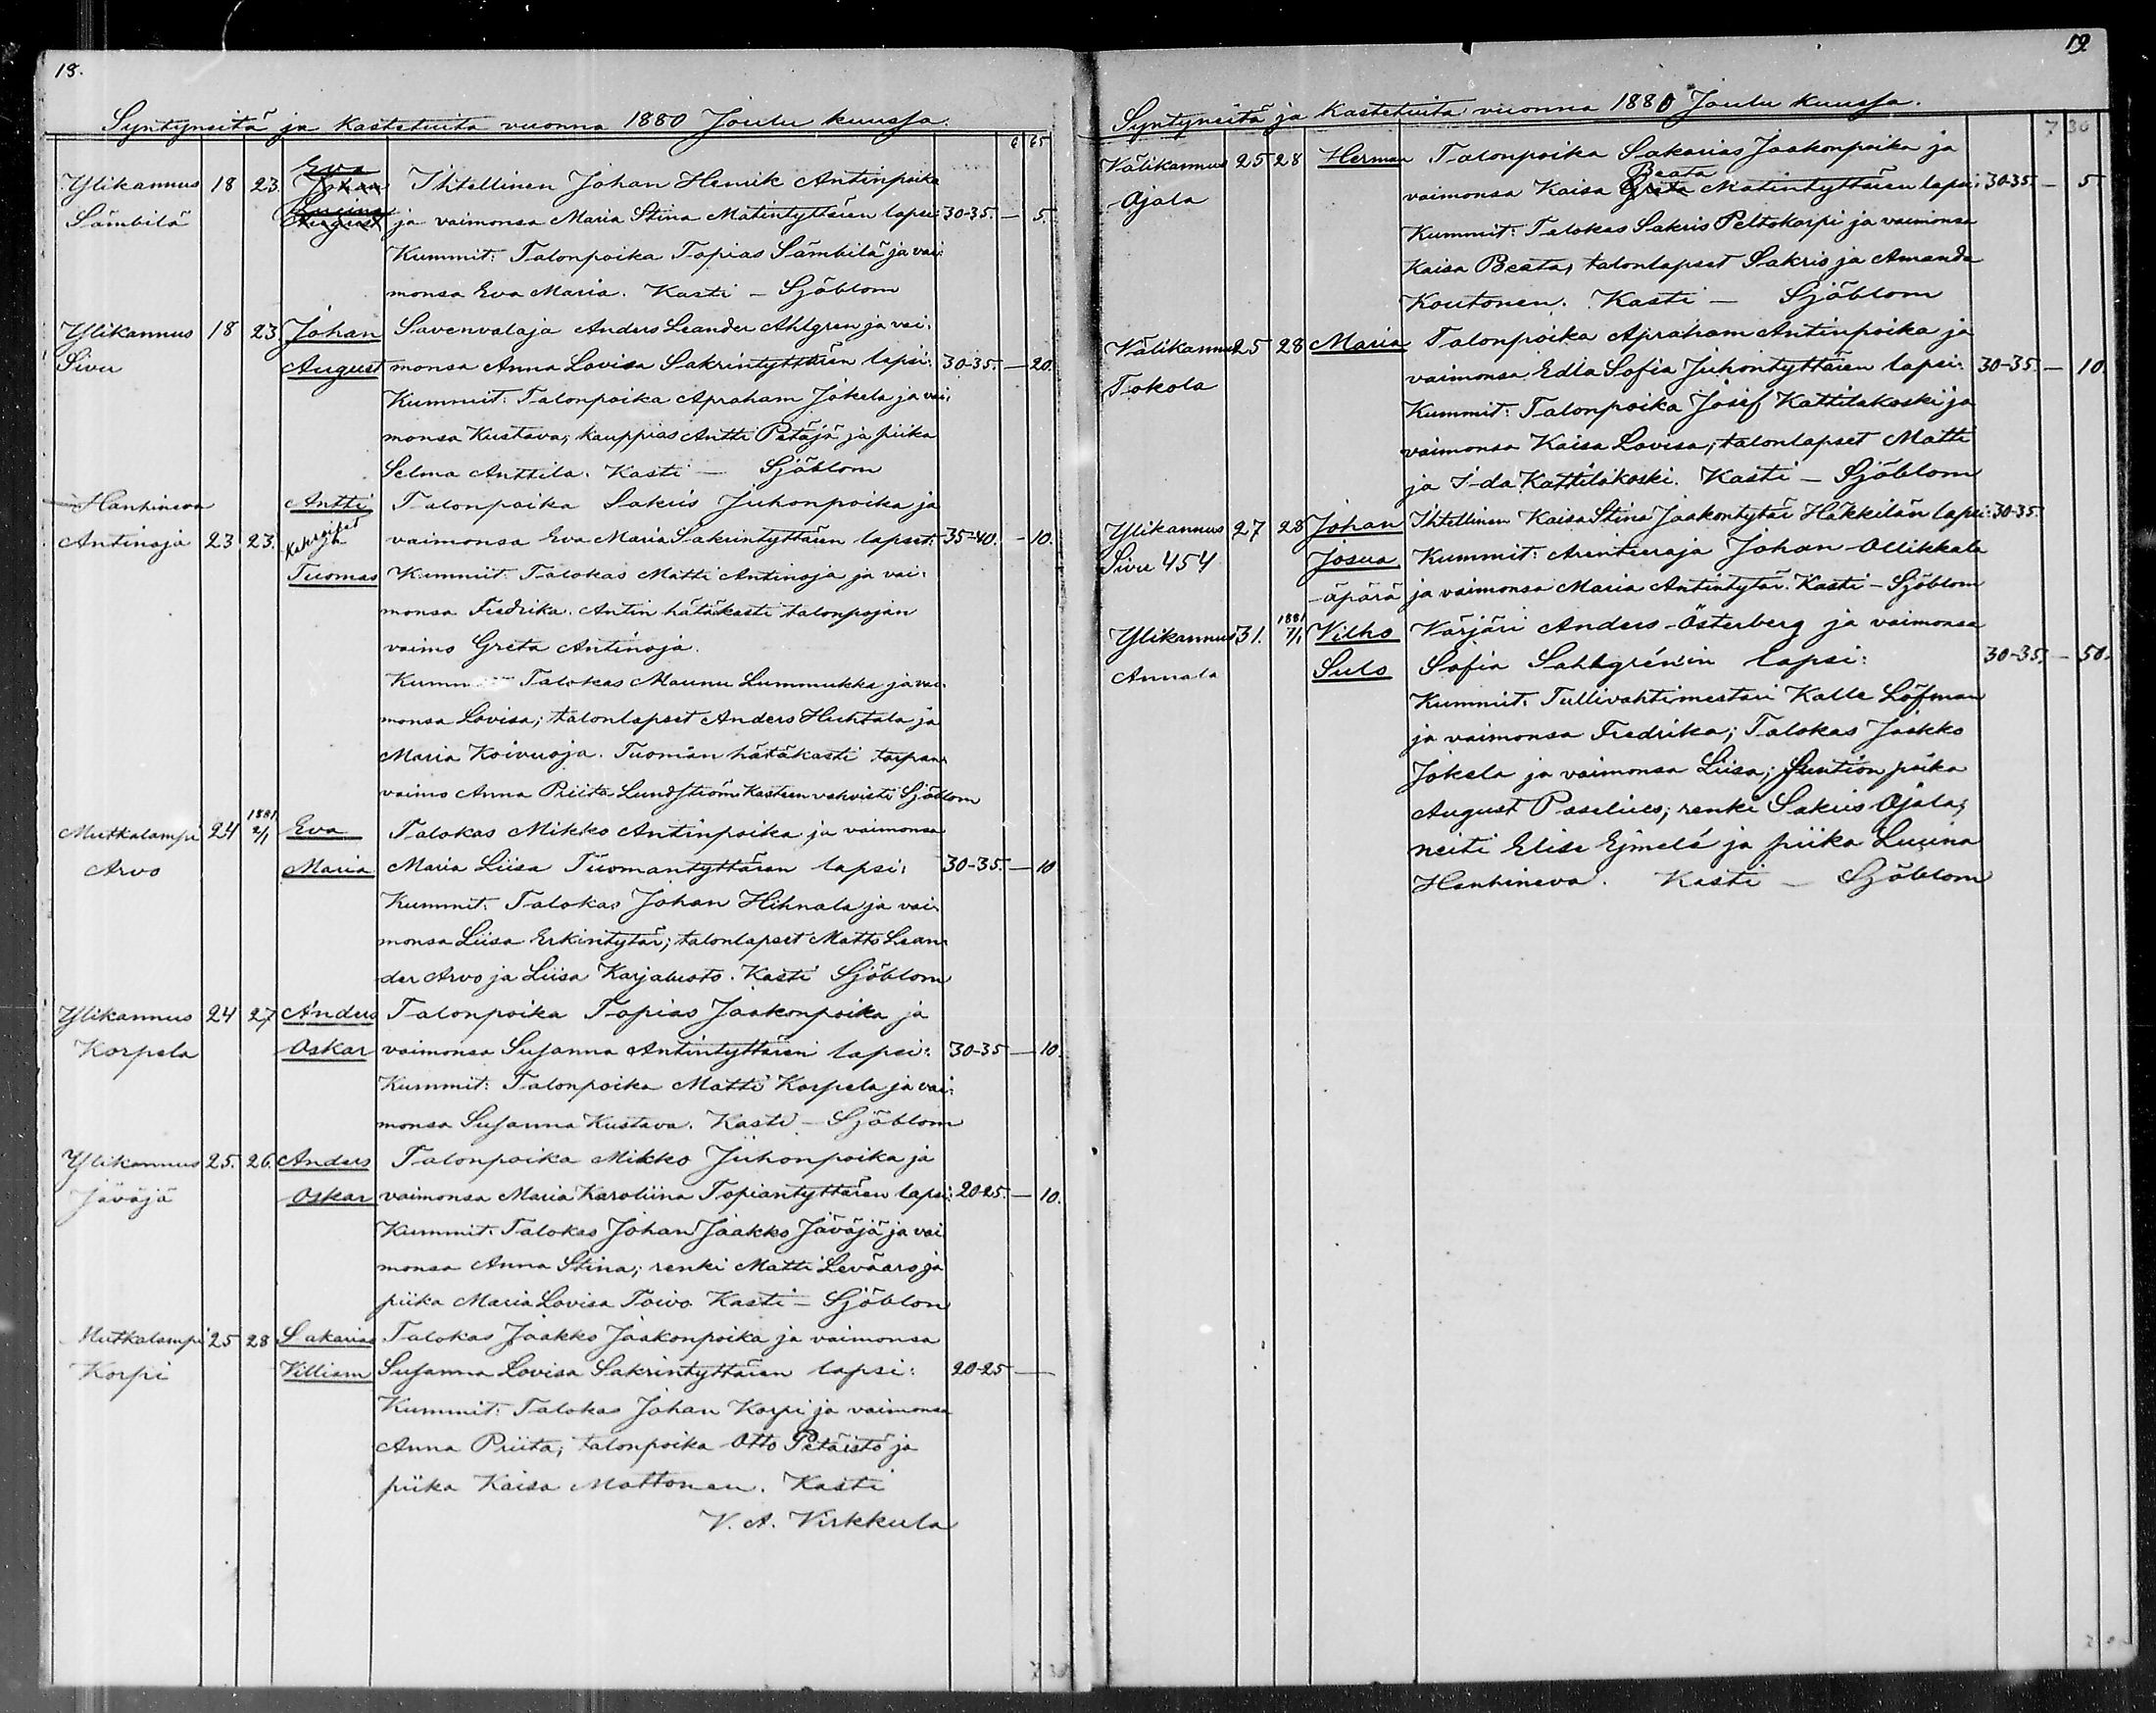 18.
Syntyneitä ja Kastetuita vuonna 1880 Joulu kuussa.
6 65
Eva
Ylikannus 18 23. Johan Ihtellinen Johan Henrik Antinpoika
Sämbilä August ja vaimonsa Maria Stina Matintyttären lapsi: 30-35. — 5.
Kummit: Talonpoika Topias Sämbilä ja vai-
monsa Eva Maria. Kasti — Sjöblom
Ylikannus 18 23 Johan Savenvalaja Anders Leander Ahlgren ja vai-
Sivu August monsa Anna Lovisa Sakrintyttären lapsi: 30-35. — 20.
Kummit: Talonpoika Apraham Jokela ja vai-
monsa Kustava; kauppias Antti Petäjä ja piika
Selma Anttila. Kasti — Sjöblom
Hanhineva Antti Talonpoika Sakris Juhonpoika ja
Antinoja 23 23. Kaksoiset ja vaimonsa Eva Maria Sakrintyttären lapset: 35-40. — 10.
Tuomas Kummit: Talokas Matti Antinoja ja vai-
monsa Fredrika. Antin hätäkasti talonpojan
vaimo Greta Antinoja.
Kummit Talokas Maunu Lummukka ja vai-
monsa Lovisa; talonlapset Anders Huhtala ja
Maria Koivuoja. Tuoman hätäkasti torpan-
vaimo Anna Priita Lundström Kasteen vahvisti Sjöblom
Mutkalampi 24 1881 2/1 Eva Talokas Mikko Antinpoika ja vaimonsa
Arvo Maria Maria Liisa Tuomantyttären lapsi: 30-35. — 10
Kummit: Talokas Johan Hihnala ja vai-
monsa Liisa Erkintytär; talonlapset Matts Lean-
der Arvo ja Liisa Karjaluoto. Kasti Sjöblom
Ylikannus 24 27 Anders Talonpoika Topias Jaakonpoika ja
Korpela Oskar vaimonsa Susanna Antintyttären lapsi: 30-35 — 10.
Kummit: Talonpoika Matti Korpela ja vai-
monsa Susanna Kustava. Kasti — Sjöblom
Ylikannus 25. 26. Anders Talonpoika Mikko Juhonpoika ja
Jäväjä Oskar vaimonsa Maria Karoliina Topiantyttären lapsi: 20-25. — 10.
Kummit: Talokas Johan Jaakko Jäväjä ja vai
monsa Anna Stina; renki Matti Leväaro ja
piika Maria Lovisa Toivo. Kasti — Sjöblom
Mutkalampi 25 28 Sakarias Talokas Jaakko Jaakonpoika ja vaimonsa
Korpi Villiam Susanna Lovisa Sakrintyttären lapsi: 20-25 —
Kummit: Talokas Johan Korpi ja vaimonsa
Anna Priita; talonpoika Otto Petäistö ja
piika Kaisa Mattonen. Kasti
V. A. Virkkula
19
Syntyneitä ja Kastetuita vuonna 1880 Joulu kuussa.
7 30
Välikannus 25 28 Herman Talonpoika Sakarias Jaakonpoika ja
Beata
Ojala vaimonsa Kaisa Greta Matintyttären lapsi: 30-35. — 5
Kummit: Talokas Sakris Peltokorpi ja vaimonsa
Kaisa Beata, talonlapset Sakris ja Amanda
Koutonen. Kasti — Sjöblom
Välikannus 25 28 Maria Talonpoika Apraham Antinpoika ja
Tokola vaimonsa Edla Sofia Juhontyttären lapsi: 30-35. — 10.
Kummit: Talonpoika Josef Kattilakoski ja
vaimonsa Kaisa Lovisa; talonlapset Matti
ja Ida Kattilakoski. Kasti — Sjöblom
Ylikannus 27 28 Johan Ihtellinen Kaisa Stina Jaakontytär Häkkilän lapsi: 30-35
Sivu 454 Josua Kummit: Arenteeraja Johan Ollikkala
äpärä ja vaimonsa Maria Antintytär. Kasti — Sjöblom
Ylikannus 31. 1881 7/1 Vilho Värjäri Anders Österberg ja vaimonsa
Annala Sulo Sofia Sahlgrénin lapsi: 30-35. — 50.
Kummit: Tullivahtimestari Kalle Löfman
ja vaimonsa Fredrika; Talokas Jaakko
Jokela ja vaimonsa Liisa; Suntion poika
August Paselius; renki Sakris Ojala;
neiti Elise Ejmelé ja piika Luuina
Hanhineva. Kasti — Sjöblom